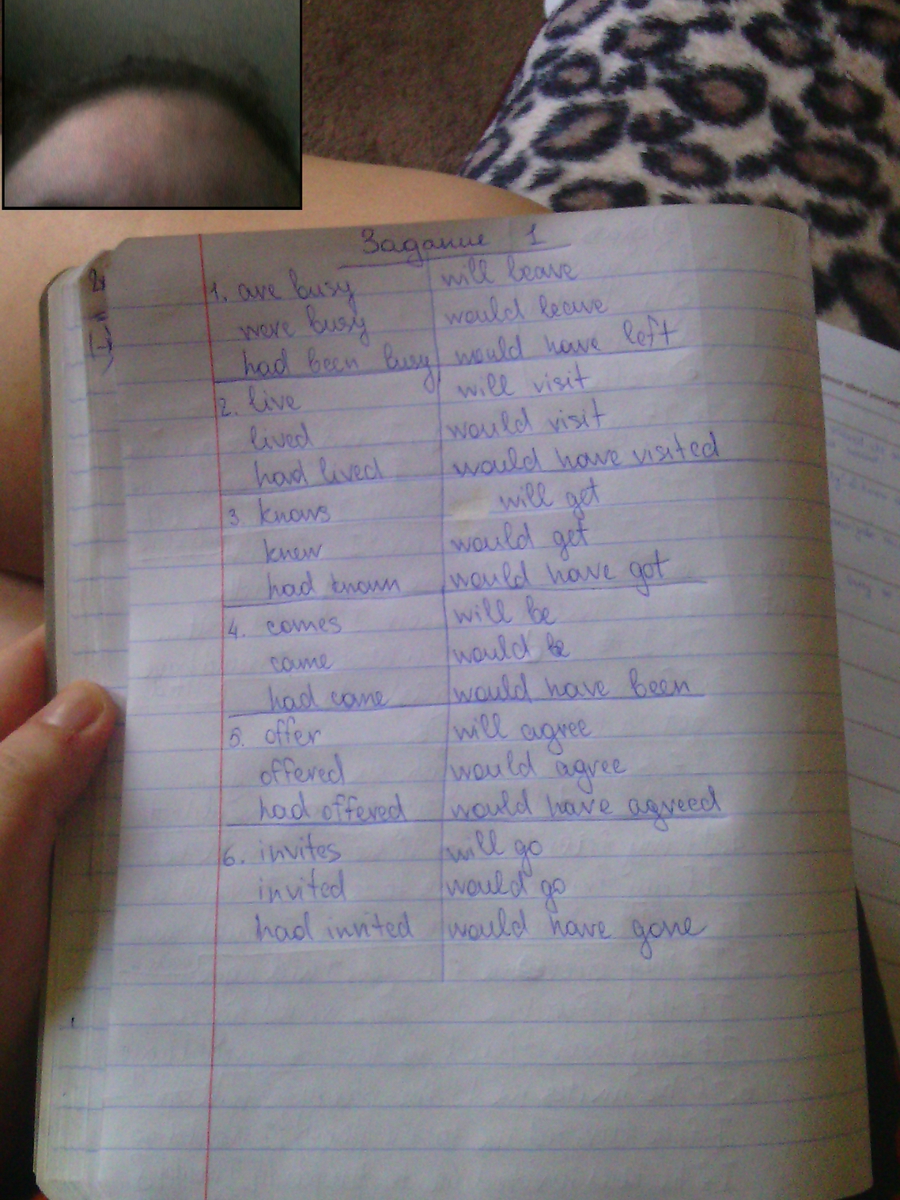 Задание 1
1. are busy will leave
were busy would leave
had been busy would have left
2. live will visit
lived would visit
had lived would have visited
3. knows will get
knew would get
had known would have got
4. comes will be
came would be
had came would have been
5. offer will agree
offered would agree
had offered would have agreed
6. invites will go
invited would go
had invited would have gone